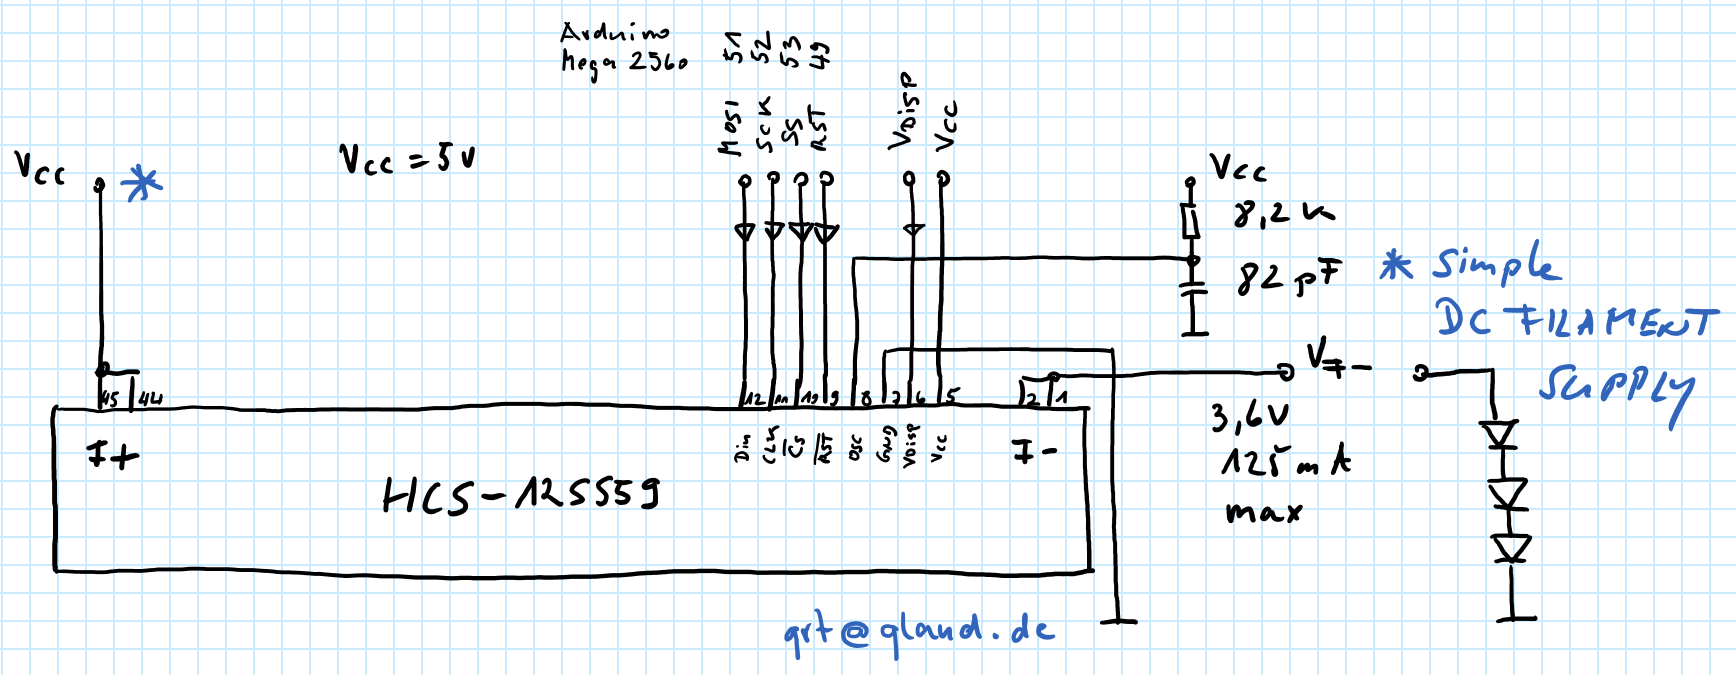 Arduino
Mega 2560
51
52
53
49
MOSI
SCK
SS
RST
VDISP
VCC
Vcc *
Vcc = 5V
Vcc
8,2 k
82 pF
* Simple
DC FILAMENT
SUPPLY
VF-
3,6V
125 mA
max
45
44
12
11
10
9
8
7
6
5
2
1
F+
Din
CLK
/CS
/RST
OSC
GND
VDISP
VCC
F-
HCS-12SS59
grt@qland.de